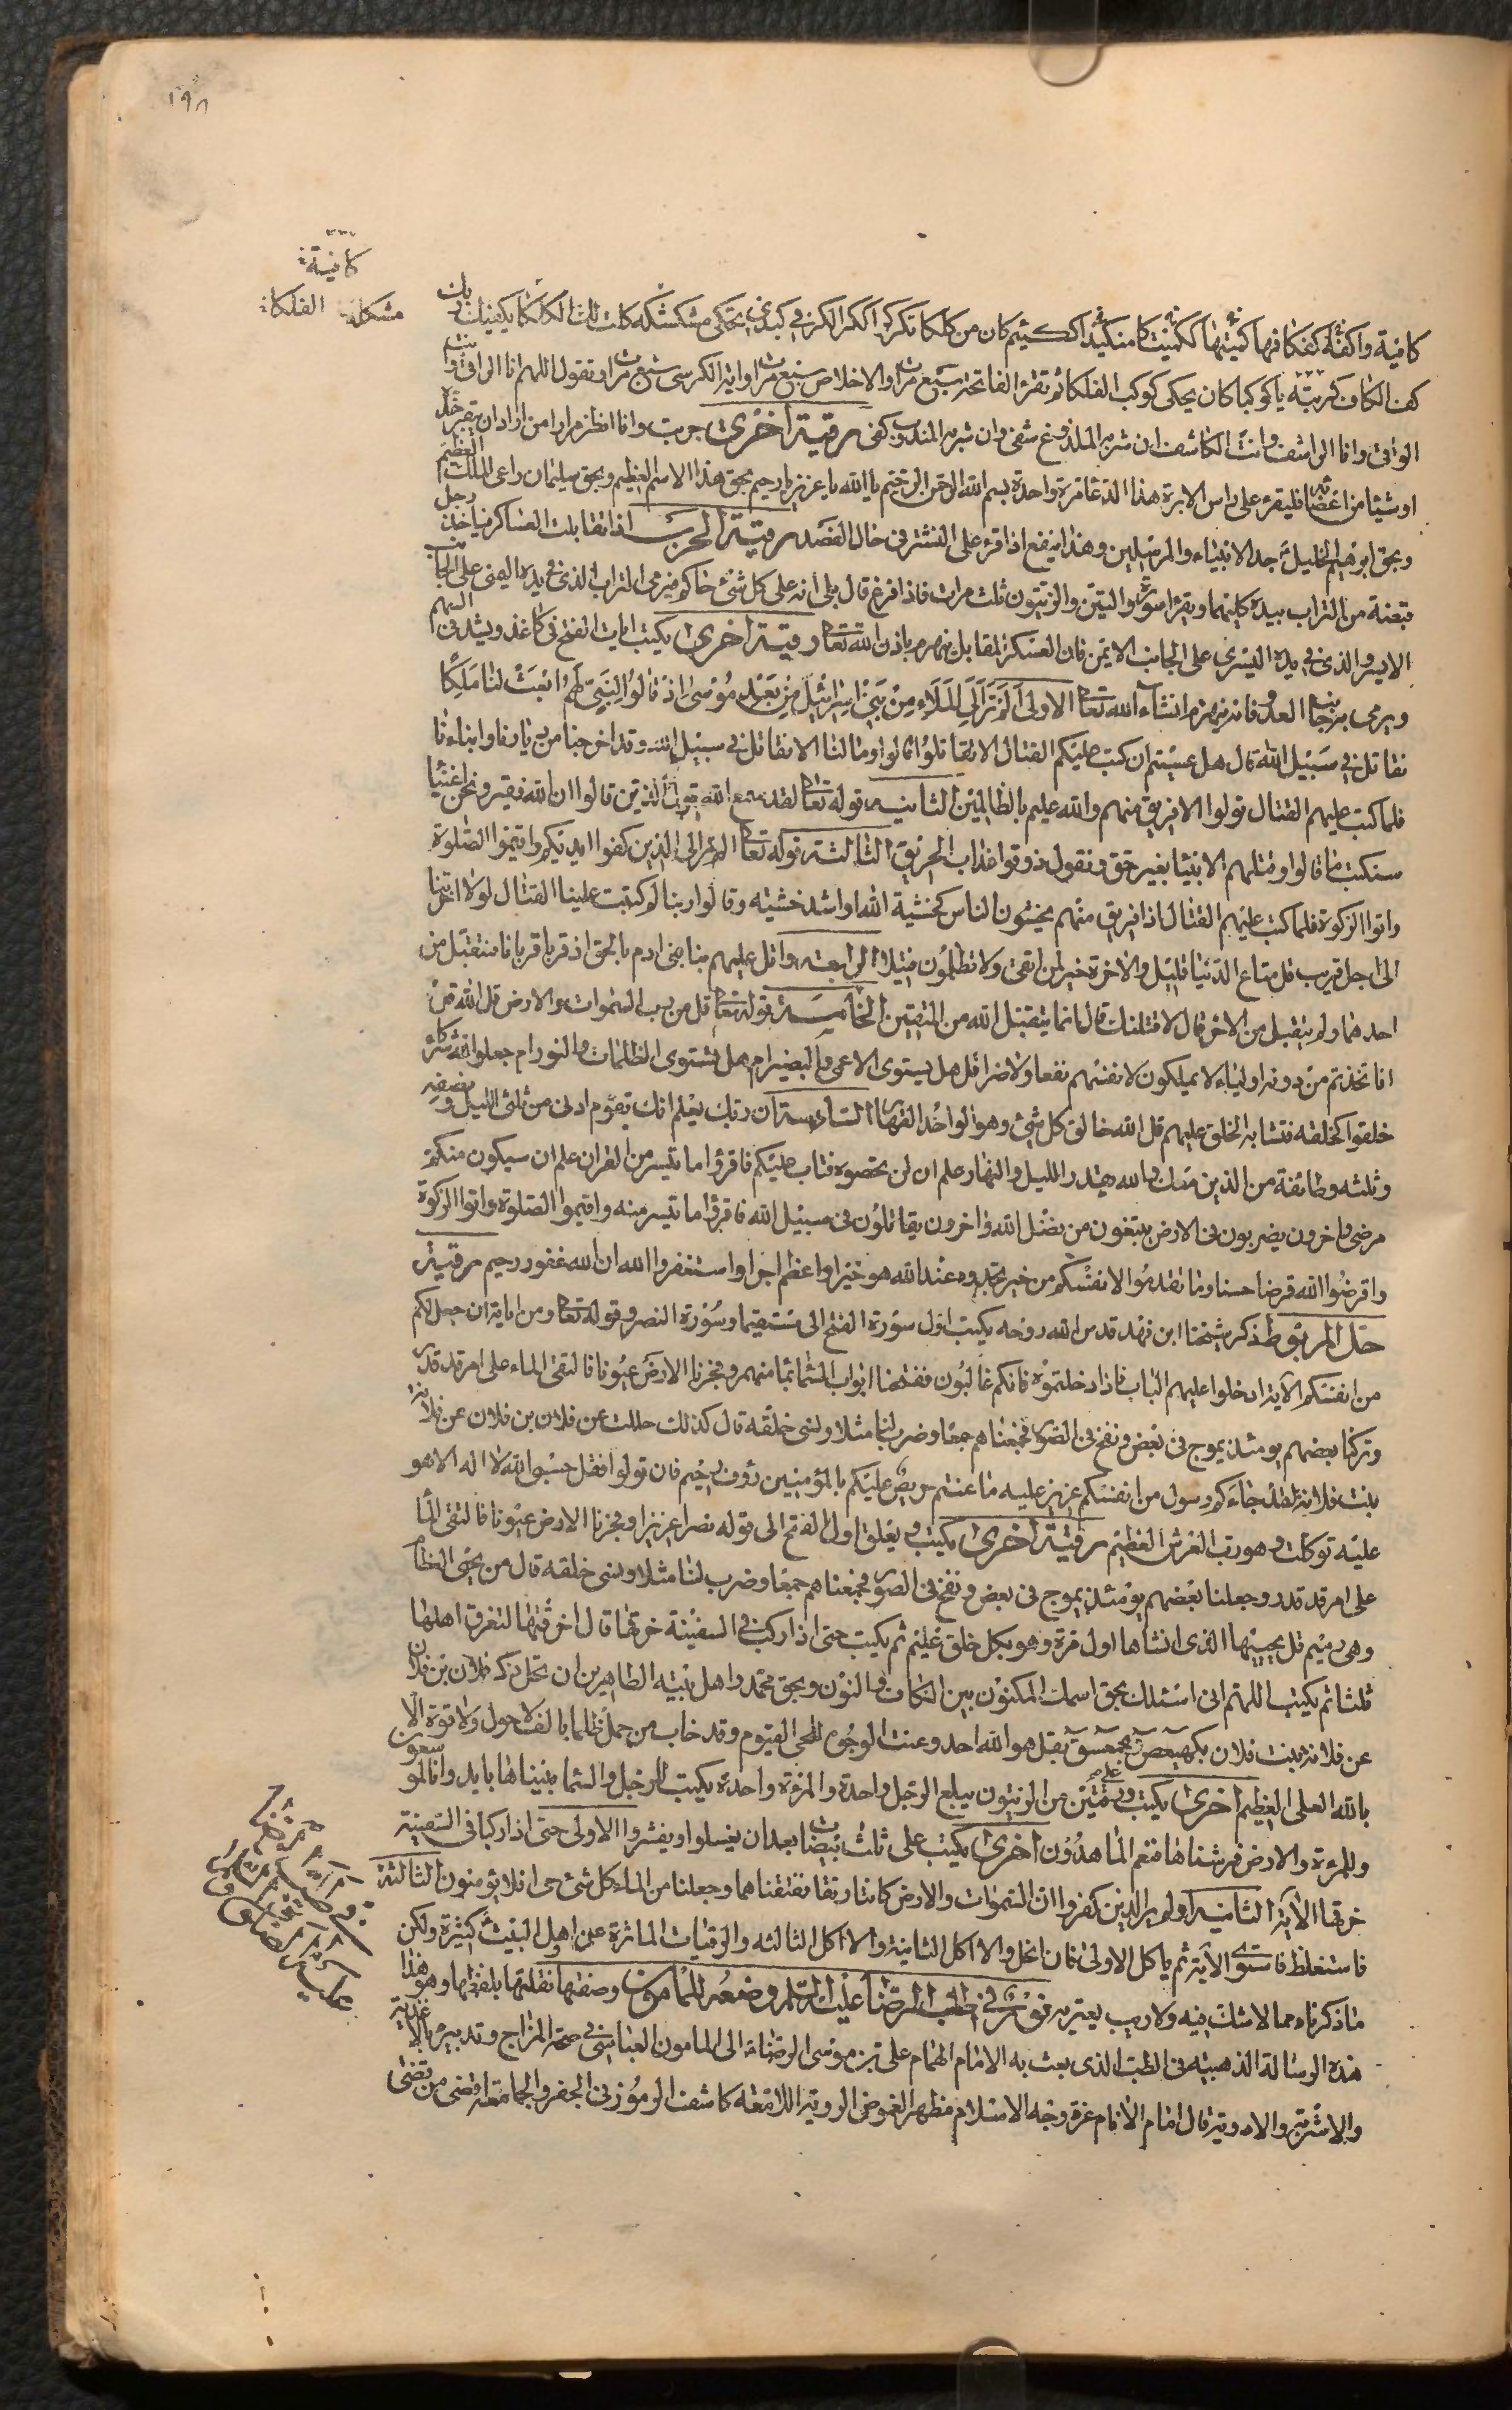 ١٩٨
كافية
مشكلة الفلكا
كافية واكفة كفكافها كميتها ككميت كا منكيد اكثيم كان من كلكا تكركر الكر الكر في كبدي تحكي مشكشكه كانت لك الكالكا يكفيك ربك
كف الكاف كربته يا كوكبا كان يحكي كوكب الفلكا ثم تقرء الفاتحة سبع مرات والاخلاص سبع مرات واية الكرسي سبع مرات وتقول اللهم انا الراقي وانت
الواقي وانا الراشف وانت الكاشف ان شربه الملدوغ شفى وان شربه المندوب كفى رقية اخرى جربت وانا انظر مرارا من اراد ان يقبر خده
او شيئا من اعضائه فليقرء على راس الابرة هذا الدعا مرة واحدة بسم الله الرحمن الرحيم يا الله يا عزيز يا رحيم بحق هذا الاسم العظيم وبحق سليمان راعى الملك العظيم
وبحق ابرهيم الخليل جد الانبياء والمرسلين وهذا ينفع اذا قرء على النشتر في حال الفصد رقية الحرب اذا تقابلت العساكر فياخذ رجل
قبضة من التراب بيده كليتهما ويقرا سورة والتين والزيتون ثلث مرات فاذا فرغ قال بلى انه على كل شئ حاكم فيرمى التراب الذى في يده اليمنى على الجانب
الايسر والذى في يده اليسرى على الجانب الايمن فان العسكر المقابل ينهزم باذن الله تعالى رقية اخرى يكتب ايات الفتح في كاغذ ويشد في السهم
ويرمى به جانب العدو فانه ينهزم انشاء الله تعالى الاولى الم تر الى الملاء من بني اسرائيل من بعد موسى اذ قالوا لنبي لهم ابعث لنا ملكا
نقاتل في سبيل الله قال هل عسيتم ان كتب عليكم القتال الا تقاتلوا قالوا وما لنا الا نقاتل في سبيل الله وقد اخرجنا من ديارنا وابناءنا
فلما كتب عليهم القتال تولوا الا فريق منهم والله عليم بالظالمين الثانية قوله تعالى لقد سمع الله قول الذين قالوا ان الله فقير ونحن اغنيا
سنكتب ما قالوا وقتلهم الانبيا بغير حق ونقول ذوقوا عذاب الحريق الثالثة قوله تعالى الم تر الى الذين كفوا ايديكم واقيموا الصلوة
واتوا الزكوة فلما كتب عليهم القتال اذا فريق منهم يخشون الناس كخشية الله او اشد خشية وقالوا ربنا لم كتبت علينا القتال لولا اخرتنا
الى اجل قريب قل متاع الدنيا قليل والاخرة خير لمن اتقى ولا تظلمون فتيلا الرابعة واتل عليهم نبا ابنى ادم بالحق اذ قربا قربانا فتقبل من
احدهما ولم يتقبل من الاخر قال لاقتلنك قال انما يتقبل الله من المتقين الخامسة قوله تعالى قل من رب السموات والارض قل الله قل
افاتخذتم من دونه اولياء لا يملكون لانفسهم نفعا ولا ضرا قل هل يستوى الاعمى والبصير ام هل تستوى الظلمات والنور ام جعلوا لله شركاء
خلقوا كخلقه فتشابه الخلق عليهم قل الله خالق كل شئ وهو الواحد القهار السادسة ان ربك يعلم انك تقوم ادنى من ثلثى الليل ونصفه
وثلثه وطائفة من الذين معك والله يقدر الليل والنهار علم ان لن تحصوه فتاب عليكم فاقرؤا ما تيسر من القران علم ان سيكون منكم
مرضى واخرون يضربون في الارض يبتغون من فضل الله واخرون يقاتلون في سبيل الله فاقرؤا ما تيسر منه واقيموا الصلوة واتوا الزكوة
واقرضوا الله قرضا حسنا وما تقدموا لانفسكم من خير تجدوه عند الله هو خيرا واعظم اجرا واستغفروا الله ان الله غفور رحيم رقية
حل المربوط ذكر شيخنا ابن فهد قدس الله روحه يكتب اول سورة الفتح الى مستقيما وسورة النصر وقوله تعالى ومن اياته ان جعل لكم
من انفسكم الآية ادخلوا عليهم الباب فاذا دخلتموه فانكم غالبون ففتحنا ابواب السما بما منهمر وفجرنا الارض عيونا فالتقى الماء على امر قد قدر
وتركنا بعضهم يومئذ يموج في بعض ونفخ في الصور فجمعناهم جمعا وضرب لنا مثلا ونسى خلقه قال كذلك حللت عن فلان بن فلان عن فلانة
بنت فلانة لقد جاءكم رسول من انفسكم عزيز عليه ما عنتم حريص عليكم بالمؤمنين رؤف رحيم فان تولوا فقل حسبي الله لا اله الا هو
عليه توكلت وهو رب العرش العظيم رقية اخرى يكتب ويعلق اول الفتح الى قوله نصرا عزيزا وفجرنا الارض عيونا فالتقى الما
على امر قد قدر وجعلنا بعضهم يومئذ يموج في بعض ونفخ في الصور فجمعناهم جمعا وضرب لنا مثلا ونسى خلقه قال من يحيى العظام
وهى رميم قل يحييها الذى انشاها اول مرة وهو بكل خلق عليم ثم يكتب حتى اذا ركبا في السفينة خرقها قال اخرقتها لتغرق اهلها
ثلثا ثم يكتب اللهم انى اسئلك بحق اسمك المكنون بين الكاف والنون وبحق محمد واهل بيته الطاهرين ان تحل ذكر فلان بن فلان
عن فلانة بنت فلان بكهيعص بحمعسق بقل هو الله احد وعنت الوجوه للحى القيوم وقد خاب من حمل ظلما بالف لا حول ولا قوة الا
بالله العلى العظيم اخرى يكتب على ورقتين من الزيتون يبلع الرجل واحدة والمرءة واحدة يكتب للرجل والسما بنيناها بايد وانا لموسعون
وللمرءة والارض فرشناها فنعم الماهدون اخرى يكتب على ثلث بيضات بعد ان يغسلوا ويقشروا الاولى حتى اذا ركبا في السفينة
خرقها الآية الثانية اولم ير الذين كفروا ان السموات والارض كانتا رتقا ففتقناهما وجعلنا من الماء كل شئ حى افلا يؤمنون الثالثة
فاستغلظ فاستوى الآية ثم ياكل الاولى فان انحل والا اكل الثانية والا اكل الثالثة والرقيات الماثورة عن اهل البيت كثيرة ولكن
ما ذكرناه مما لا شك فيه ولا ريب يعتريه في طب الرضا عليه السلم وضعه للمامون وصفتها نقلتها بلفظها وهو هذا
هذه الرسالة الذهبية في الطب الذى بعث به الامام الهمام على بن موسى الرضا الى المامون العباسى في صحة المزاج وتدبيره بالاغذية
والاشربة والادوية قال امام الانام غرة وجه الاسلام مظهر الغموض الروية اللامعة كاشف الرموز في الجفر والجامعة اقضى من قضى